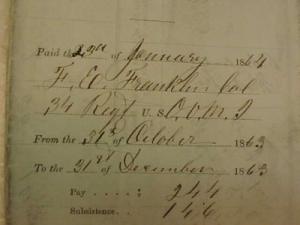 Paid the 23rd of January 1864
F. E. Franklin Col
34 Regt U.S. C.O.M.I
From the 31st of October 1863
To the 31st of December 1863
Pay ....; 244
Subsistence.. 146